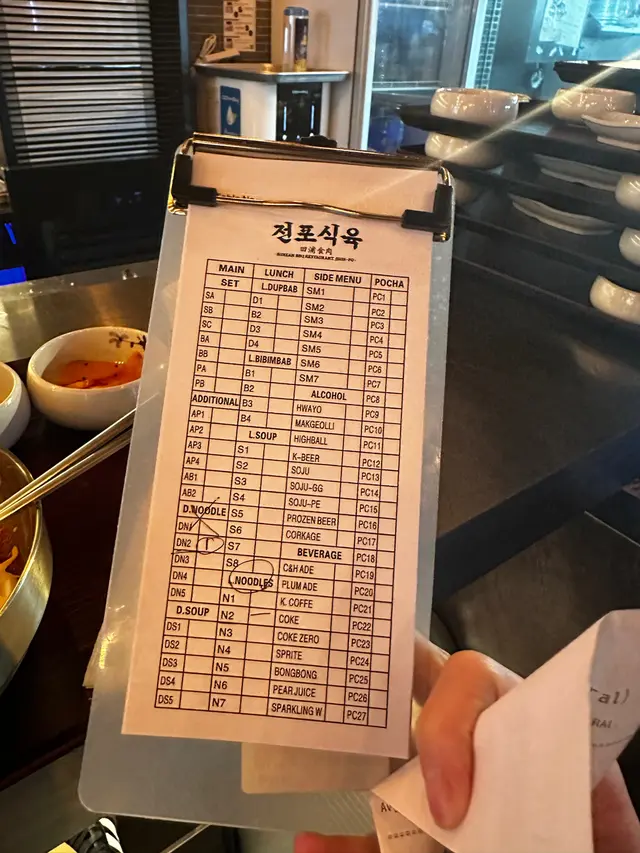 전포식육
田浦食肉
-KOREAN BBQ RESTAURANT, JEON-PO-
MAIN LUNCH SIDE MENU POCHA
SET L.DUPBAB SM1 PC1
SA D1 SM2 PC2
SB B2 SM3 PC3
SC D3 SM4 PC4
BA D4 SM5 PC5
BB L.BIBIMBAB SM6 PC6
PA B1 SM7 PC7
PB B2 ALCOHOL PC8
ADDITIONAL B3 HWAYO PC9
AP1 B4 MAKGEOLLI PC10
AP2 L.SOUP HIGHBALL PC11
AP3 S1 K-BEER PC12
AP4 S2 SOJU PC13
AB1 S3 SOJU-GG PC14
AB2 S4 SOJU-PE PC15
D.NOODLE S5 PROZEN BEER PC16
DN1 S6 CORKAGE PC17
DN2 S7 BEVERAGE PC18
DN3 S8 C&H ADE PC19
DN4 L.NOODLES PLUM ADE PC20
DN5 N1 K. COFFE PC21
D.SOUP N2 COKE PC22
DS1 N3 COKE ZERO PC23
DS2 N4 SPRITE PC24
DS3 N5 BONGBONG PC25
DS4 N6 PEAR JUICE PC26
DS5 N7 SPARKLING W PC27